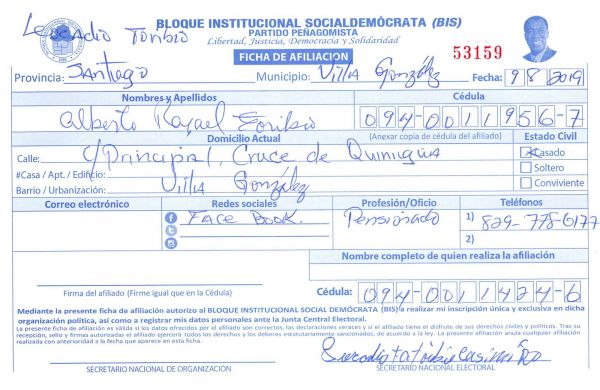 BLOQUE INSTITUCIONAL SOCIALDEMÓCRATA (BIS)
PARTIDO PEÑAGOMISTA
Leocadio Toribio
Libertad, Justicia, Democracia y Solidaridad
FICHA DE AFILIACION
53159
Provincia: Santiago Municipio: Villa González Fecha: 9 8 2019
Nombres y Apellidos Cédula
Alberto Rafael Toribio 094-0011956-7
Domicilio Actual (Anexar copia de cédula del afiliado) Estado Civil
Calle: C/Principal, Cruce de Quinigua Casado
#Casa / Apt. / Edificio: Soltero
Barrio / Urbanización: Villa González Conviviente
Correo electrónico Redes sociales Profesión/Oficio Teléfonos
Face Book. Pensionado 1) 829-778-6177
2)
Nombre completo de quien realiza la afiliación
Firma del afiliado (Firme igual que en la Cédula) Cédula: 094-0011424-6
Mediante la presente ficha de afiliación autorizo al BLOQUE INSTITUCIONAL SOCIAL DEMÓCRATA (BIS) a realizar mi inscripción única y exclusiva en dicha
organización política, así como a registrar mis datos personales ante la Junta Central Electoral.
La presente ficha de afiliación es válida si los datos ofrecidos por el afiliado son correctos, las declaraciones veraces y si el afiliado tiene el disfrute de sus derechos civiles y políticos. Tras su
recepción, sello y firmas autorizadas el afiliado ejercerá todos los derechos y los deberes estatutariamente sancionados, de acuerdo a la ley. La presente afiliación anula cualquier afiliación
realizada con anterioridad a la fecha que aparece en esta ficha.
SECRETARIO NACIONAL DE ORGANIZACIÓN SECRETARIO NACIONAL ELECTORAL